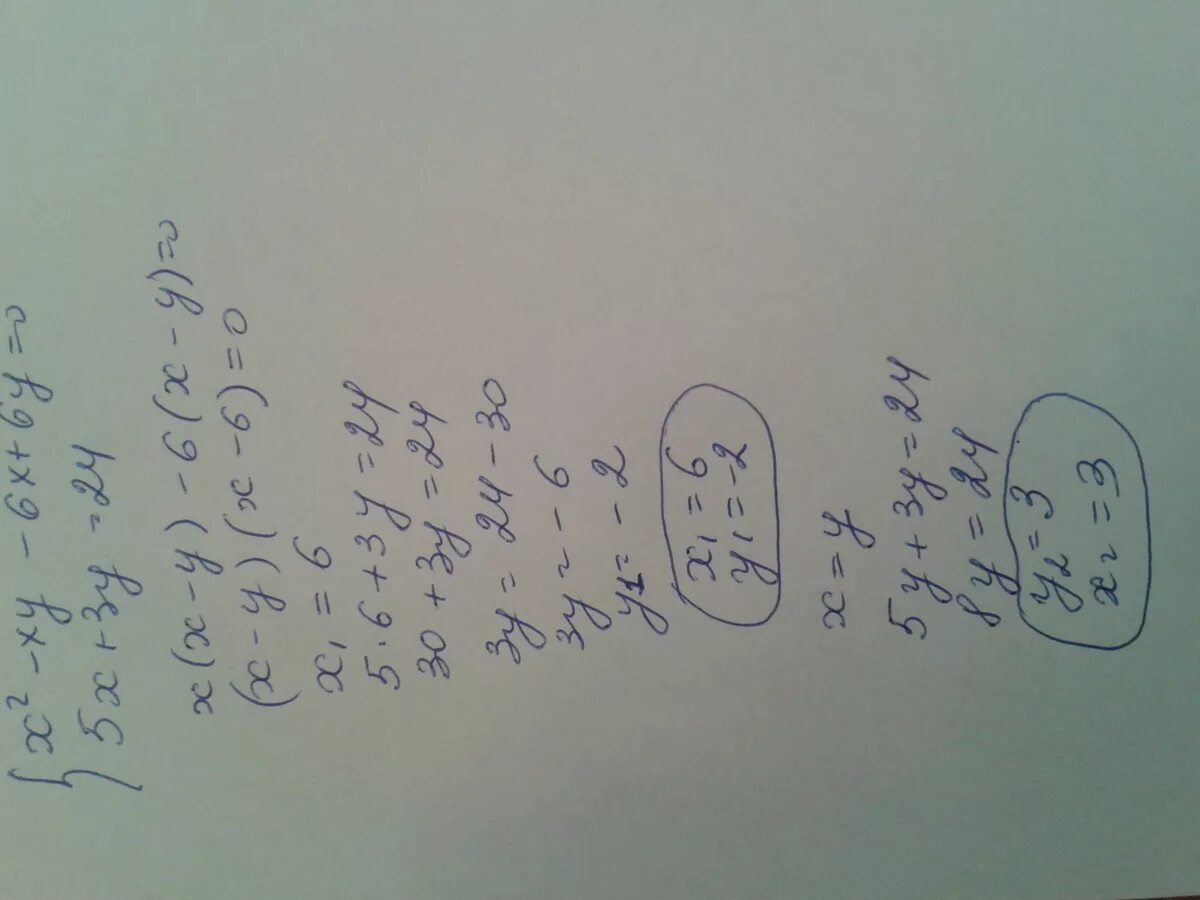 { x² - xy - 6x + 6y = 0
5x + 3y = 24
x(x - y) - 6(x - y) = 0
(x - y)(x - 6) = 0
x₁ = 6
5·6 + 3y = 24
30 + 3y = 24
3y = 24 - 30
3y = - 6
y₁ = - 2
x₁ = 6
y₁ = -2
x = y
5y + 3y = 24
8y = 24
y₂ = 3
x₂ = 3